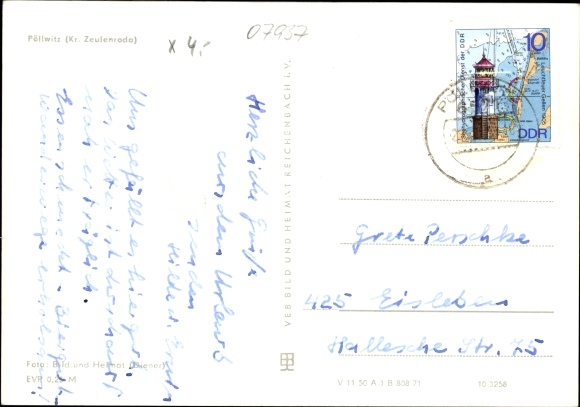 Pöllwitz (Kr. Zeulenroda)
x 4,-
07957
Herzliche Grüße
aus dem Urlaub
senden
Hilde u. Ernst
Uns gefällt es hier gut.
Das Wetter ist durchaus
noch erträglich.
Essen schmeckt
Foto: Bild und Heimat (Diener)
EVP 0,20 M
VEB BILD UND HEIMAT REICHENBACH I. V.
V 11 50 A 1 B 808 71
10 3238
10
DDR
Grete Perschke
425 Eisleben
Hallesche Str. 75